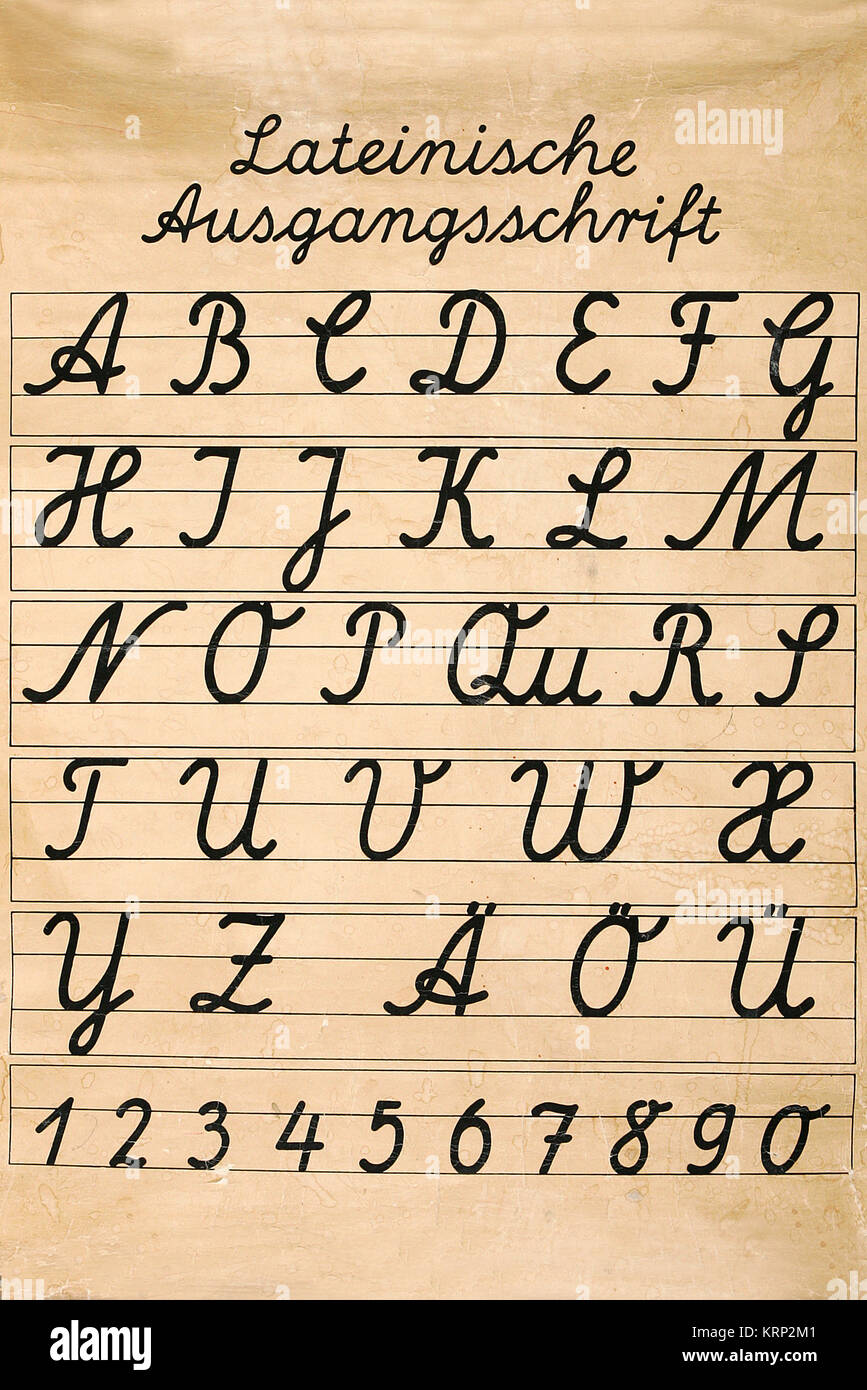 Lateinische
Ausgangsschrift
A B C D E F G
H I J K L M
N O P Qu R S
T U V W X
Y Z Ä Ö Ü
1 2 3 4 5 6 7 8 9 0
alamy stock photo
KRP2M1
www.alamy.com